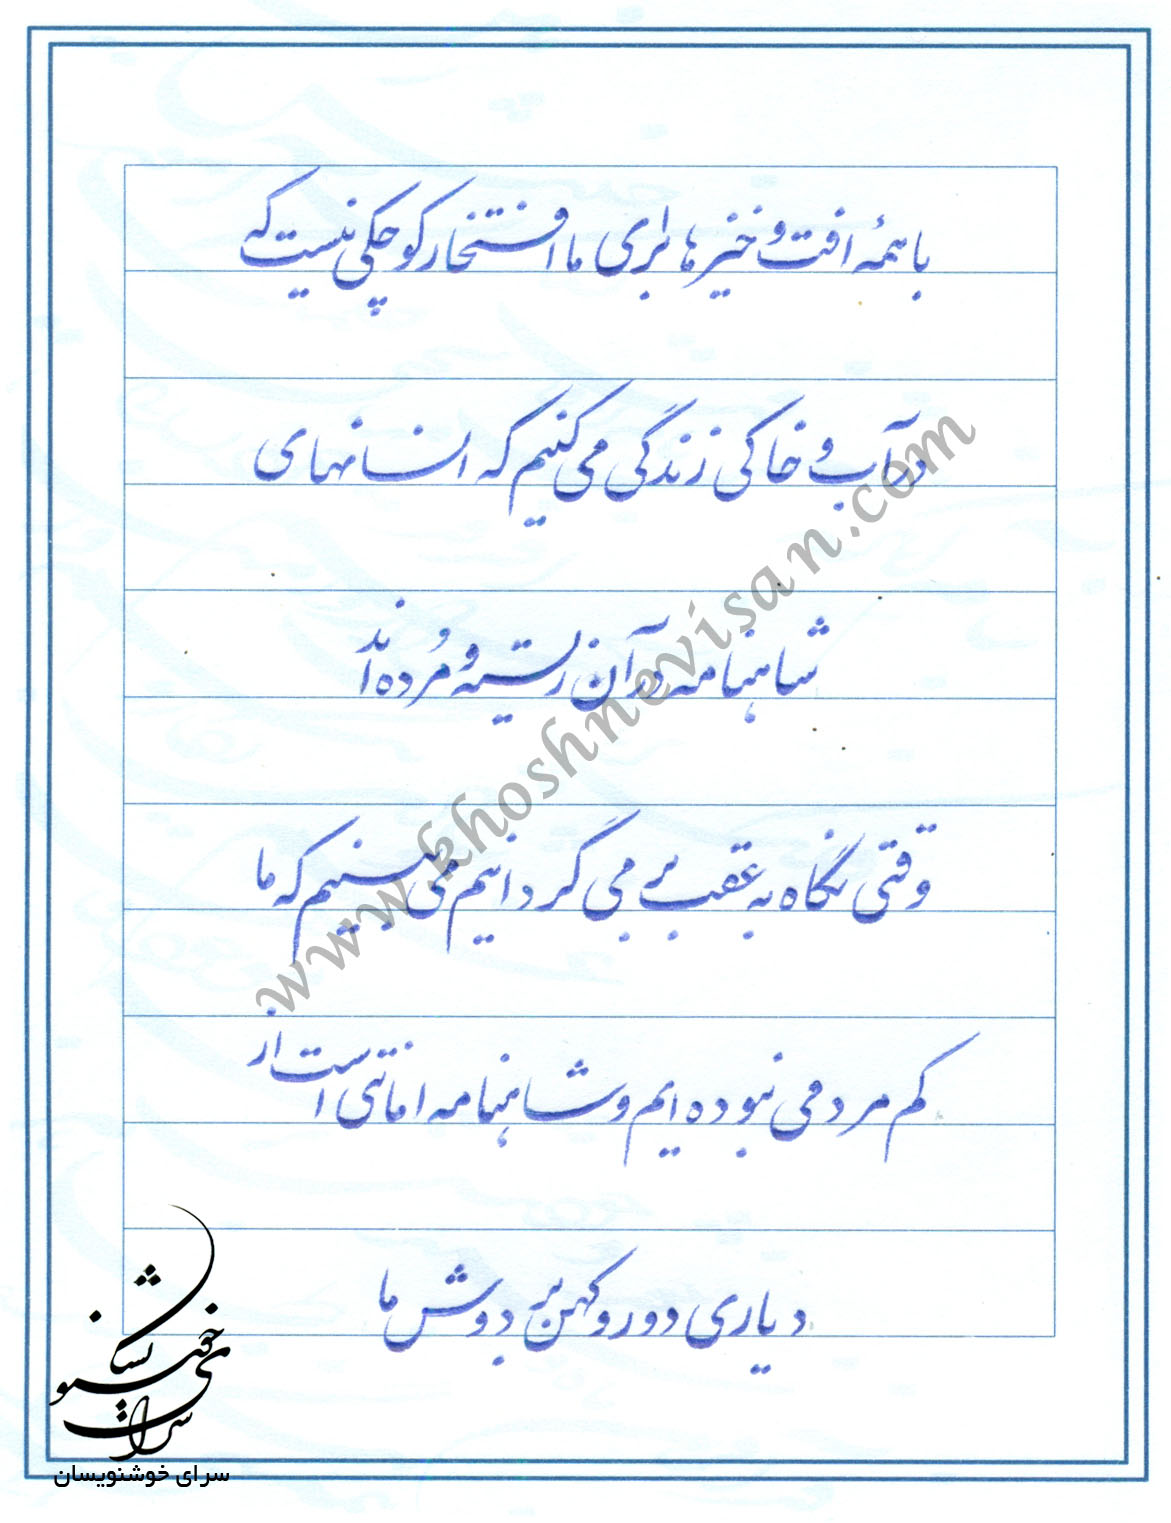 با همهٔ افت و خیزها برای ما افتخار کوچکی نیست که
در آب و خاکی زندگی می کنیم که انسانهای
شاهنامه در آن زیسته و مُرده اند
وقتی نگاه به عقب بر می گردانیم می بینیم که ما
کم مردمی نبوده ایم و شاهنامه امانتی است از
دیاری دور و کهن بر دوش ما
www.khoshnevisan.com
سرای خوشنویسان
سرای خوشنویسان